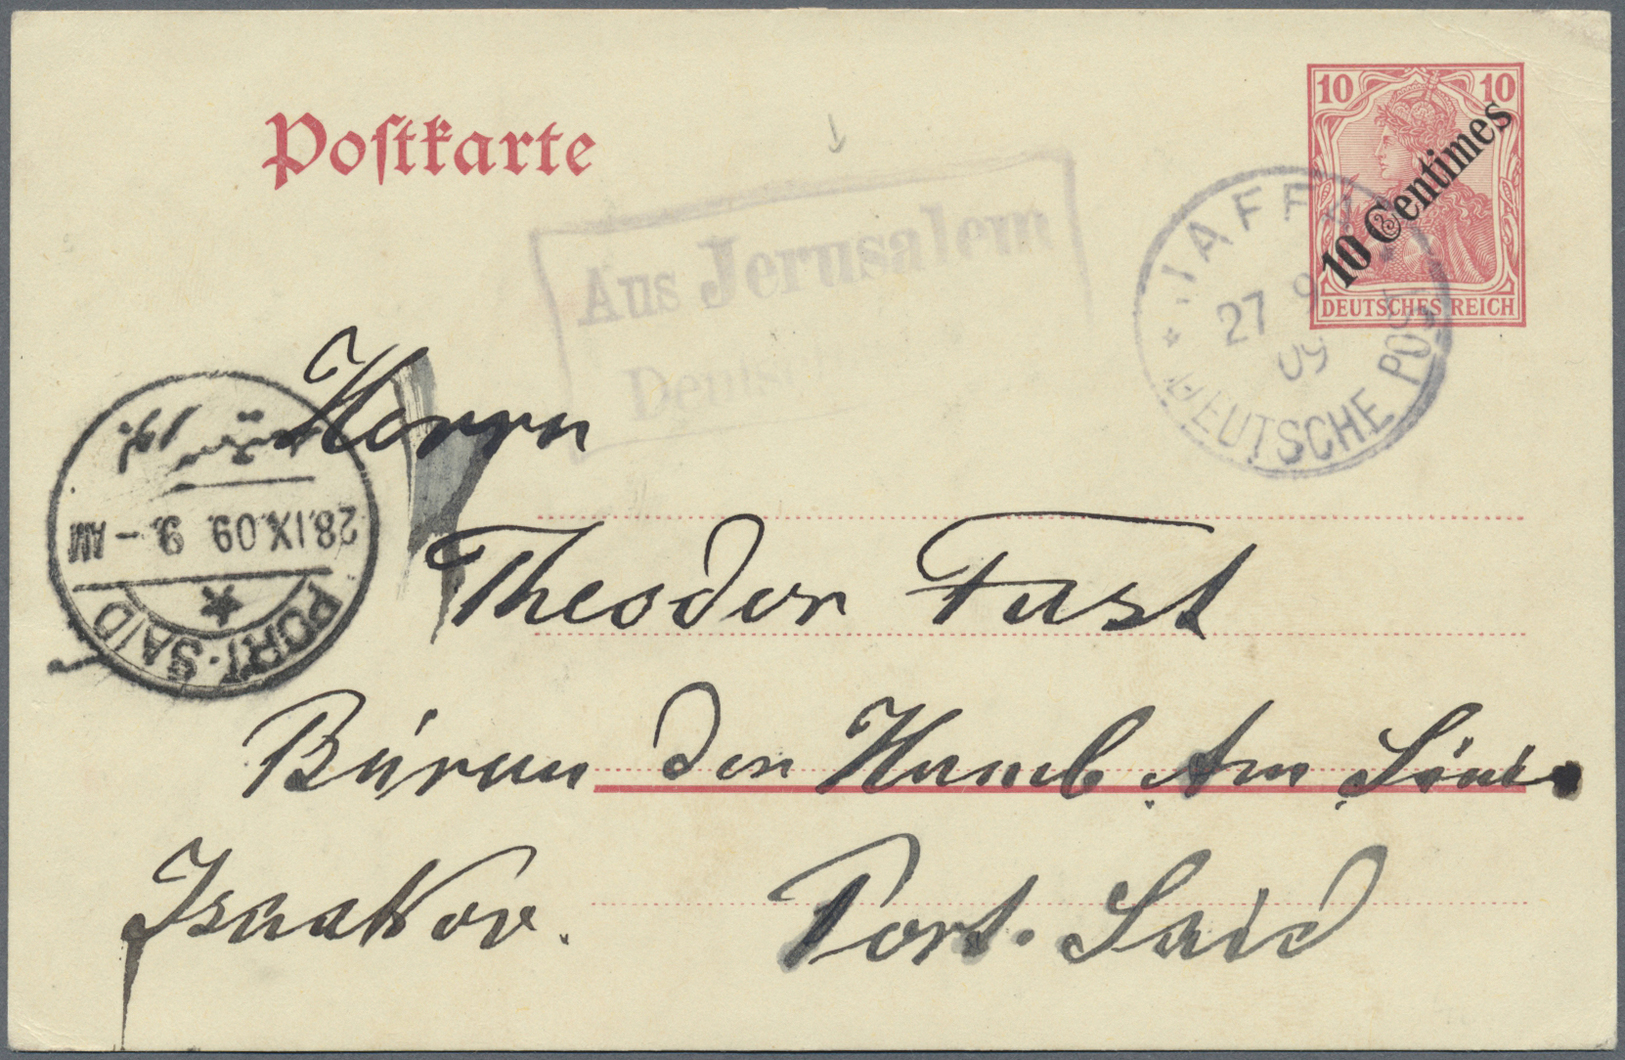 Postkarte
10 10
10 Centimes
DEUTSCHES REICH
Aus Jerusalem
JAFFA
27 9
09
DEUTSCHE POST
Herrn
28.IX.09 9.- AM
PORT-SAID
Theodor Fast
Büreau der Hamb. Am. Linie
Isaakov. Port. Said